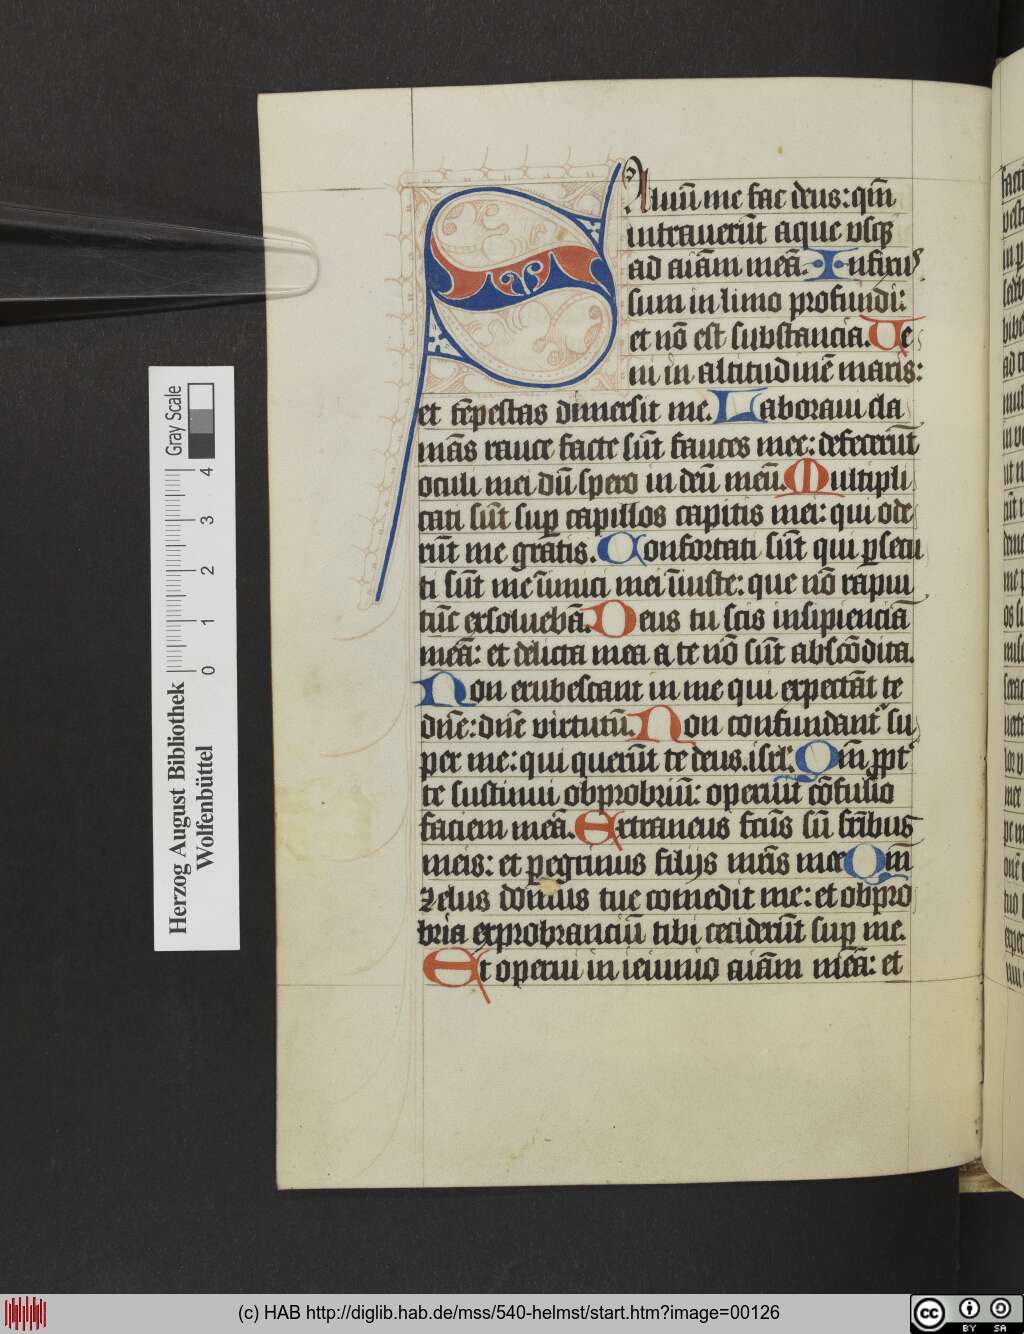 SAluū me fac deus: qm̄
intrauerūt aque vsq;
ad aīam meā. Infixus
sum in limo profundi:
et nō est substancia. Ve
ni in altitudinē maris:
et tēpestas dimersit me. Laboraui cla
mās rauce facte sūt fauces mee: defecerūt
oculi mei dū spero in deū meū. Multipli
cati sūt sup capillos capitis mei: qui ode
rūt me gratis. Confortati sūt qui psecu
ti sūt me īimici mei īiuste: que nō rapui
tūc exsoluebā. Deus tu scis insipienciā
meā: et delicta mea a te nō sūt abscōdita.
Non erubescant in me qui expectāt te
dn̄e: dn̄e virtutū. Non confundant su
per me: qui querūt te deus isrl. Qm̄ ppt
te sustinui obprobriū: operuit cōfusio
faciem meā. Extraneus fcūs sū frībus
meis: et pegrinus filijs mr̄is mee Qm̄
zelus domus tue comedit me: et obpro
bria exprobranciū tibi ceciderūt sup me.
Et operui in ieiunio aīam meā: et
Herzog August Bibliothek
Wolfenbüttel
Gray Scale
0 1 2 3 4
(c) HAB http://diglib.hab.de/mss/540-helmst/start.htm?image=00126
cc BY SA